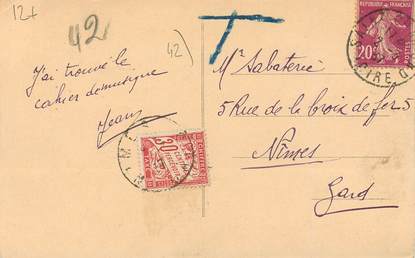 12+
42
42
T
J'ai trouvé le
cahier de musique
Jean
Mr Sabaterie
5 Rue de la Croix de fer 5
Nîmes
Gard
REPUBLIQUE FRANCAISE
20c
30
CENTIMES
A PERCEVOIR